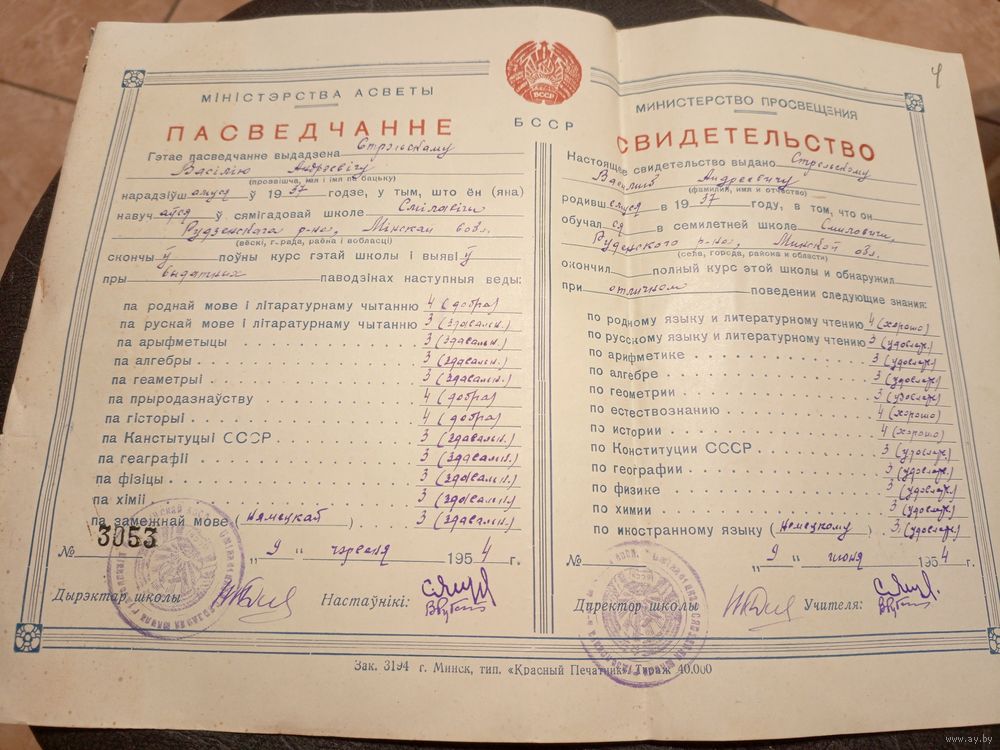 4
БССР
МІНІСТЭРСТВА АСВЕТЫ
ПАСВЕДЧАННЕ
Гэтае пасведчанне выдадзена Стрэльскаму
Васілію Андрэевічу
(прозвішча, імя і імя па бацьку)
нарадзіўш амуся ў 1937 годзе, у тым, што ён (яна)
навуч аўся ў сямігадовай школе Смілавічы
Рудзенскага р-на, Мінскай вобл.
(вёскі, г-рада, раёна і вобласці)
скончы ў поўны курс гэтай школы і выявіў
пры выдатных паводзінах наступныя веды:
па роднай мове і літаратурнаму чытанню 4 (добра)
па рускай мове і літаратурнаму чытанню 3 (здавальн.)
па арыфметыцы 3 (здавальн.)
па алгебры 3 (здавальн.)
па геаметрыі 3 (здавальн.)
па прыродазнаўству 4 (добра)
па гісторыі 4 (добра)
па Канстытуцыі СССР 3 (здавальн.)
па геаграфіі 3 (здавальн.)
па фізіцы 3 (здавальн.)
па хіміі 3 (здавальн.)
па замежнай мове (Нямецкай) 3 (здавальн.)
№ 3053
„9" чэрвеня 1954 г.
Дырэктар школы Настаўнікі:
БССР
МИНИСТЕРСТВО ПРОСВЕЩЕНИЯ
СВИДЕТЕЛЬСТВО
Настоящее свидетельство выдано Стрельскому
Василию Андреевичу
(фамилия, имя и отчество)
родивш емуся в 1937 году, в том, что он
обучал ся в семилетней школе Смиловичи,
Руденского р-на, Минской обл.
(села, города, района и области)
окончил полный курс этой школы и обнаружил
при отличном поведении следующие знания:
по родному языку и литературному чтению 4 (хорошо)
по русскому языку и литературному чтению 3 (удовлетв.)
по арифметике 3 (удовлетв)
по алгебре 3 (удовлетв)
по геометрии 3 (удовлетв)
по естествознанию 4 (хорошо)
по истории 4 (хорошо)
по Конституции СССР 3 (удовлетв)
по географии 3 (удовлетв)
по физике 3 (удовлетв)
по химии 3 (удовлетв)
по иностранному языку (Немецкому) 3 (удовлетв)
№ „9" июня 1954 г.
Директор школы Учителя:
Зак. 3194 г. Минск, тип. «Красный Печатник» Тираж 40.000
www.ay.by